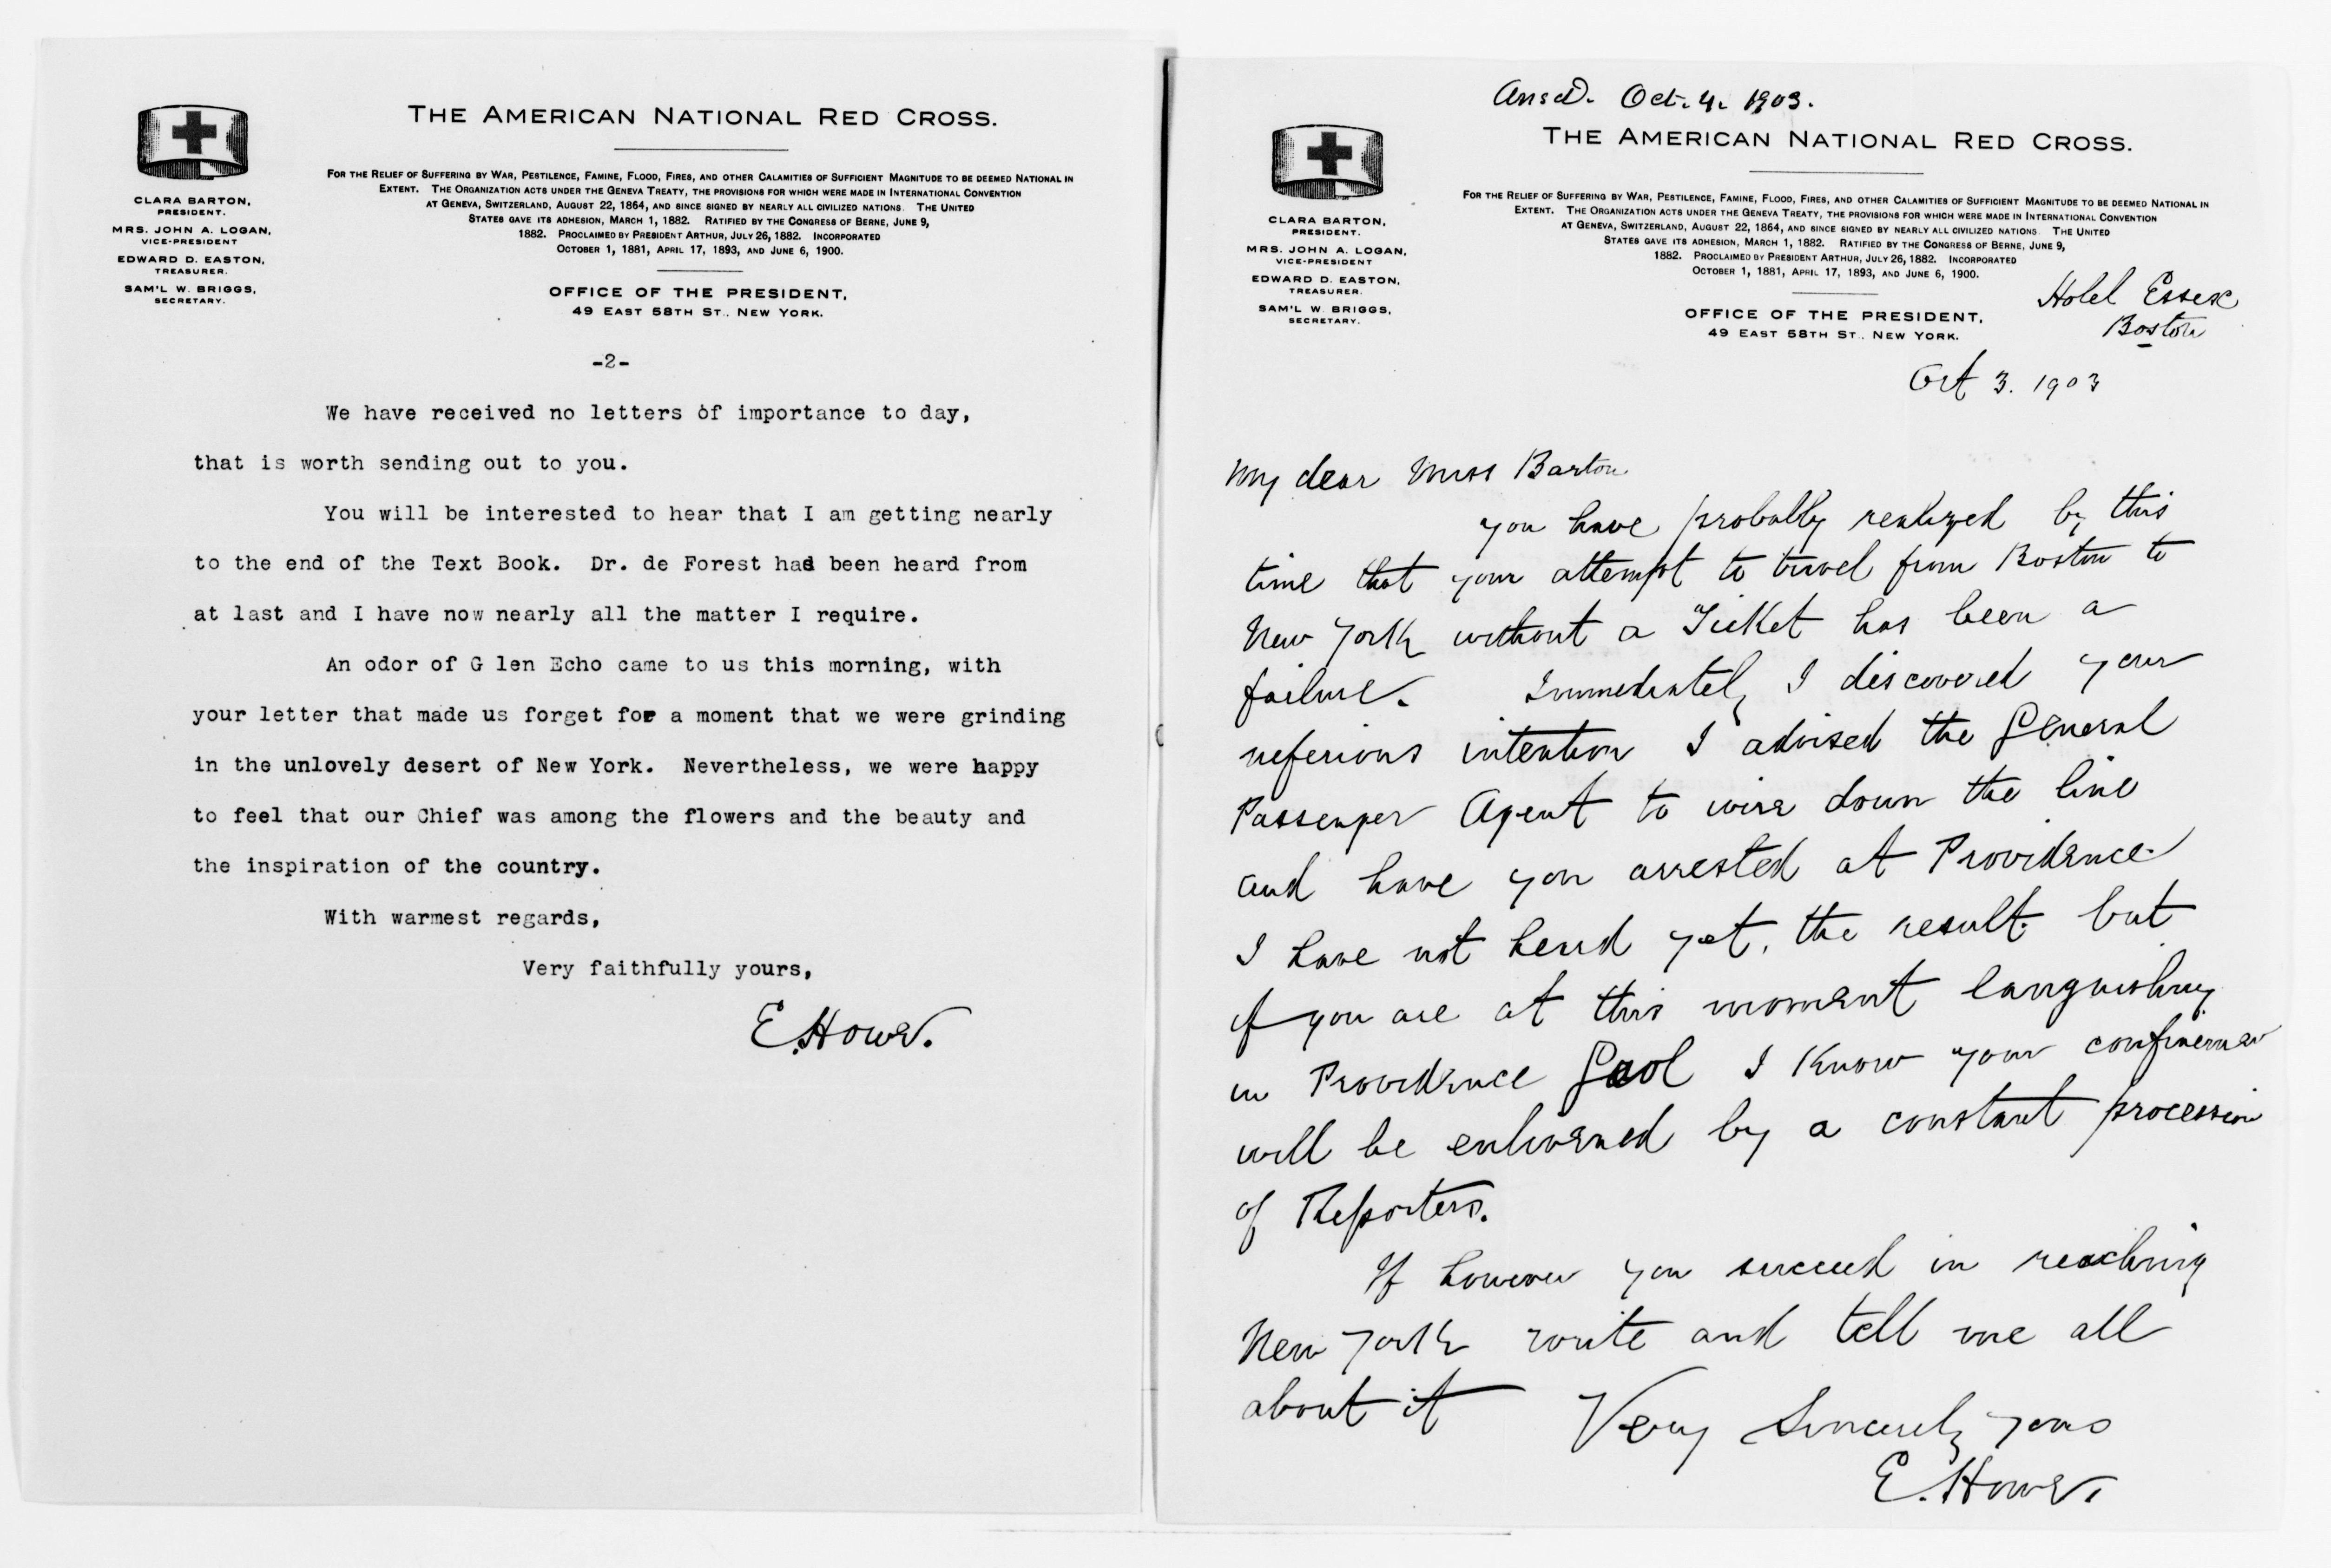 THE AMERICAN NATIONAL RED CROSS.
FOR THE RELIEF OF SUFFERING BY WAR, PESTILENCE, FAMINE, FLOOD, FIRES, AND OTHER CALAMITIES OF SUFFICIENT MAGNITUDE TO BE DEEMED NATIONAL IN
EXTENT. THE ORGANIZATION ACTS UNDER THE GENEVA TREATY, THE PROVISIONS FOR WHICH WERE MADE IN INTERNATIONAL CONVENTION
AT GENEVA, SWITZERLAND, AUGUST 22, 1864, AND SINCE SIGNED BY NEARLY ALL CIVILIZED NATIONS. THE UNITED
STATES GAVE ITS ADHESION, MARCH 1, 1882. RATIFIED BY THE CONGRESS OF BERNE, JUNE 9,
1882. PROCLAIMED BY PRESIDENT ARTHUR, JULY 26, 1882. INCORPORATED
OCTOBER 1, 1881, APRIL 17, 1893, AND JUNE 6, 1900.
CLARA BARTON,
PRESIDENT.
MRS. JOHN A. LOGAN,
VICE-PRESIDENT
EDWARD D. EASTON,
TREASURER.
SAM'L W. BRIGGS,
SECRETARY.
OFFICE OF THE PRESIDENT,
49 EAST 58TH ST., NEW YORK.
-2-
We have received no letters of importance to day,
that is worth sending out to you.
You will be interested to hear that I am getting nearly
to the end of the Text Book. Dr. de Forest had been heard from
at last and I have now nearly all the matter I require.
An odor of G len Echo came to us this morning, with
your letter that made us forget for a moment that we were grinding
in the unlovely desert of New York. Nevertheless, we were happy
to feel that our Chief was among the flowers and the beauty and
the inspiration of the country.
With warmest regards,
Very faithfully yours,
E. Howe.
Ansd. Oct. 4. 1903.
THE AMERICAN NATIONAL RED CROSS.
FOR THE RELIEF OF SUFFERING BY WAR, PESTILENCE, FAMINE, FLOOD, FIRES, AND OTHER CALAMITIES OF SUFFICIENT MAGNITUDE TO BE DEEMED NATIONAL IN
EXTENT. THE ORGANIZATION ACTS UNDER THE GENEVA TREATY, THE PROVISIONS FOR WHICH WERE MADE IN INTERNATIONAL CONVENTION
AT GENEVA, SWITZERLAND, AUGUST 22, 1864, AND SINCE SIGNED BY NEARLY ALL CIVILIZED NATIONS. THE UNITED
STATES GAVE ITS ADHESION, MARCH 1, 1882. RATIFIED BY THE CONGRESS OF BERNE, JUNE 9,
1882. PROCLAIMED BY PRESIDENT ARTHUR, JULY 26, 1882. INCORPORATED
OCTOBER 1, 1881, APRIL 17, 1893, AND JUNE 6, 1900.
CLARA BARTON,
PRESIDENT.
MRS. JOHN A. LOGAN,
VICE-PRESIDENT
EDWARD D. EASTON,
TREASURER.
SAM'L W. BRIGGS,
SECRETARY.
OFFICE OF THE PRESIDENT,
49 EAST 58TH ST., NEW YORK.
Hotel Essex
Boston
Oct 3. 1903
My dear Miss Barton
you have probably realized by this
time that your attempt to travel from Boston to
New York without a Ticket has been a
failure. Immediately I discovered your
neferious intention I advised the General
Passenger Agent to wire down the line
and have you arrested at Providence
I have not heard yet, the result. but
if you are at this moment languishing
in Providence Gaol I know your confinement
will be enlivened by a constant procession
of Reporters.
If however you succeed in reaching
New York write and tell me all
about it
Very Sincerely yours
E. Howe.